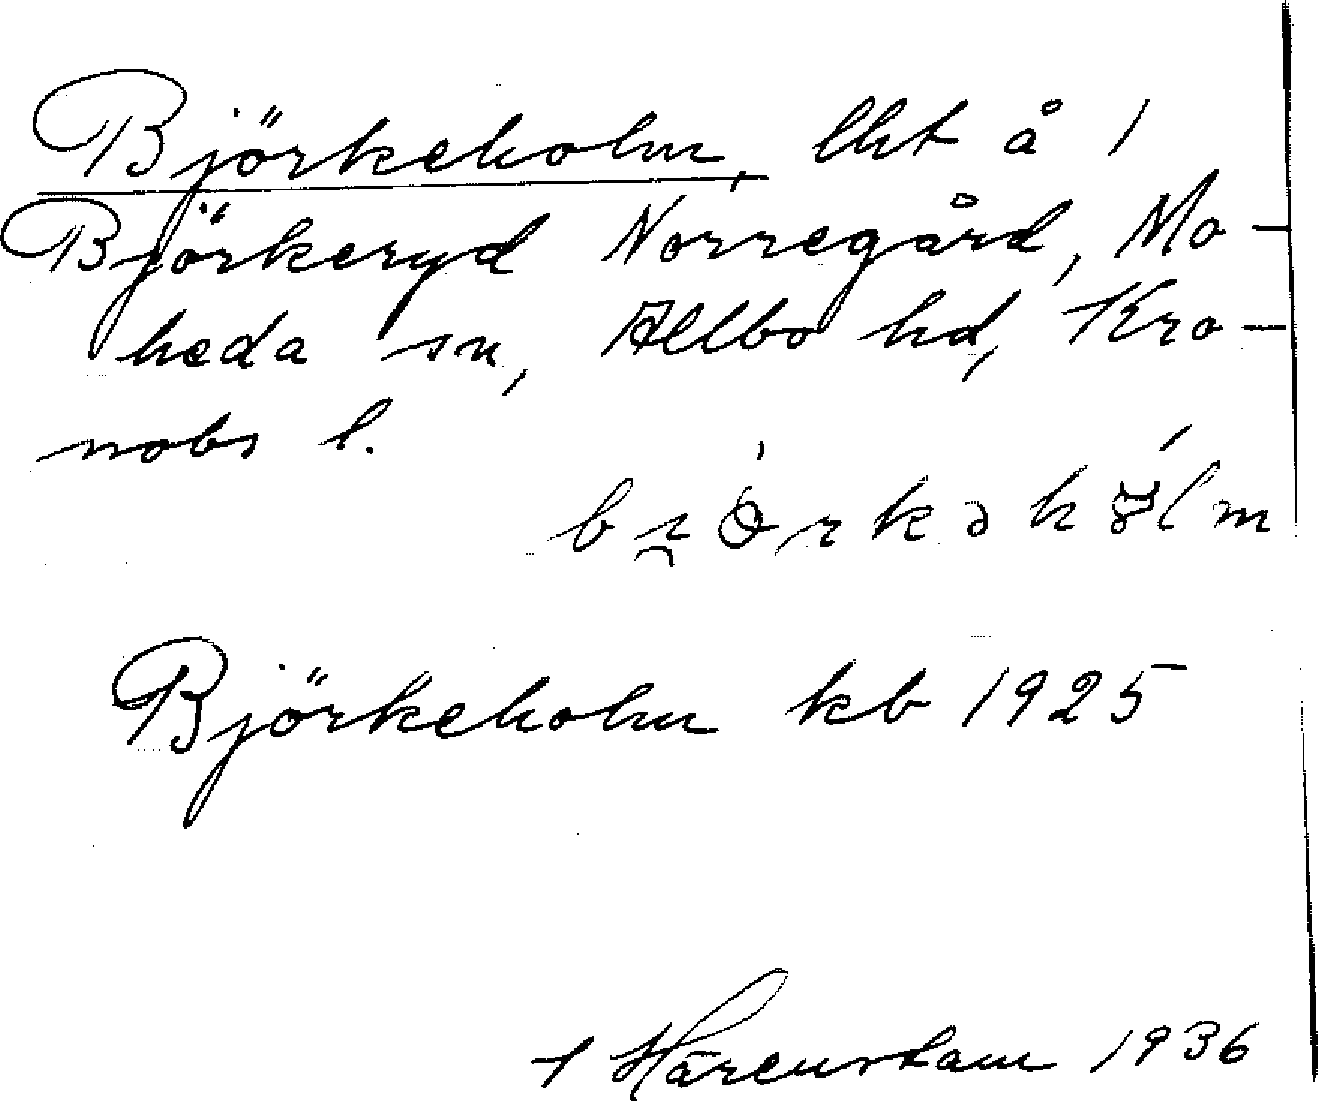 Björkeholm, lht å 1
Björkeryd Norregård, Mo-
heda sn, Allbo hd, Kro-
nobs l.
Björkeholm kb 1925
Härenstam 1936